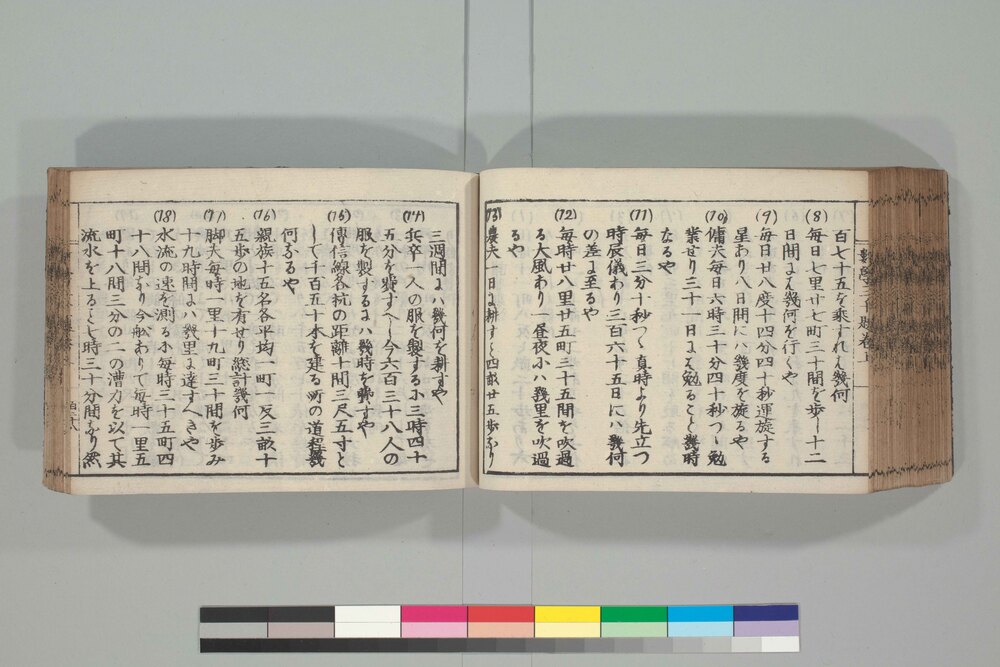 百七十五を乗すれハ幾何
(8) 毎日七里廿七町三十間を歩し十二
日間にハ幾何を行くや
(9) 毎日廿八度十四分四十秒運旋する
星あり八日間にハ幾度を旋るや
(10) 傭夫毎日六時三十分四十秒つゝ勉
業せり三十一日にハ勉ること幾時
なるや
(11) 毎日三分十秒つゝ真時より先立つ
時辰儀あり三百六十五日にハ幾何
の差に至るや
(12) 毎時廿八里廿五町三十五間を吹過
る大風あり一昼夜にハ幾里を吹過
るや
(13) 農夫一日に耕すこと四畝廿五歩なり
三週間にハ幾何を耕すや
(14) 兵卒一人の服を製するに三時四十
五分を費すへし今六百三十八人の
服を製するにハ幾時を費すや
(15) 傳信線各杭の距離十間三尺五寸と
して千百五十本を建る町の道程幾
何なるや
(16) 親族十五名各平均一町一反三畝十
五歩の地を有せり総計幾何
(17) 脚夫毎時一里十九町三十間を歩み
十九時間にハ幾里に達すへきや
(18) 水流の速を測るに毎時三十五町四
十八間なり今舩ありて毎時一里五
町十八間三分の二の漕力を以て其
流水を上ること七時三十分間なり然